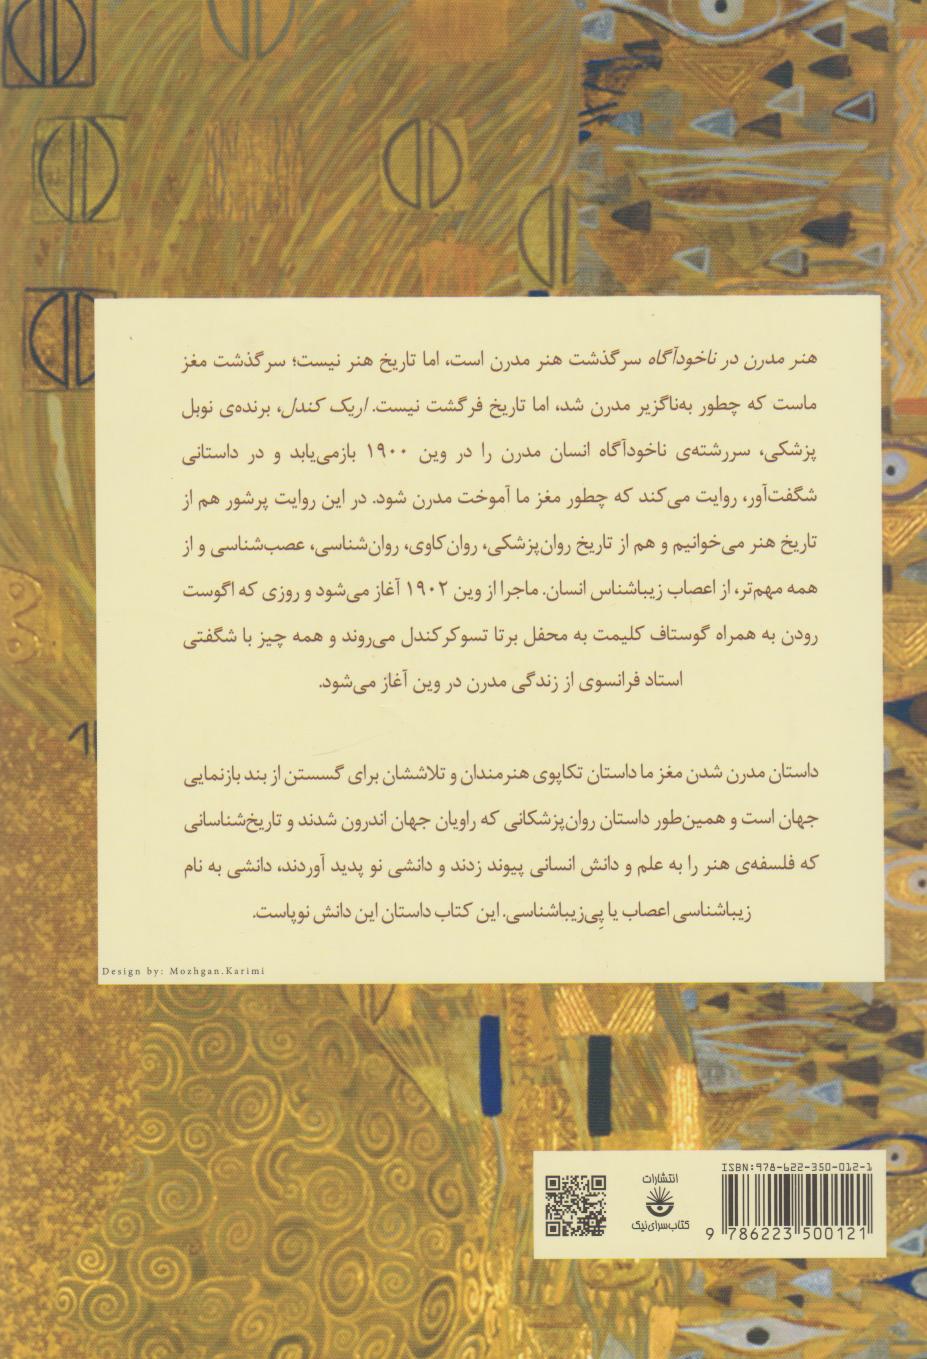 هنر مدرن در ناخودآگاه سرگذشت هنر مدرن است، اما تاریخ هنر نیست؛ سرگذشت مغز
ماست که چطور به‌ناگزیر مدرن شد، اما تاریخ فرگشت نیست. اریک کندل، برنده‌ی نوبل
پزشکی، سررشته‌ی ناخودآگاه انسان مدرن را در وین ۱۹۰۰ بازمی‌یابد و در داستانی
شگفت‌آور، روایت می‌کند که چطور مغز ما آموخت مدرن شود. در این روایت پرشور هم از
تاریخ هنر می‌خوانیم و هم از تاریخ روان‌پزشکی، روان‌کاوی، روان‌شناسی، عصب‌شناسی و از
همه مهم‌تر، از اعصاب زیباشناس انسان. ماجرا از وین ۱۹۰۲ آغاز می‌شود و روزی که اگوست
رودن به همراه گوستاف کلیمت به محفل برتا تسوکرکندل می‌روند و همه چیز با شگفتی
استاد فرانسوی از زندگی مدرن در وین آغاز می‌شود.
داستان مدرن شدن مغز ما داستان تکاپوی هنرمندان و تلاششان برای گسستن از بند بازنمایی
جهان است و همین‌طور داستان روان‌پزشکانی که راویان جهان اندرون شدند و تاریخ‌شناسانی
که فلسفه‌ی هنر را به علم و دانش انسانی پیوند زدند و دانشی نو پدید آوردند، دانشی به نام
زیباشناسی اعصاب یا پِی‌زیباشناسی. این کتاب داستان این دانش نوپاست.
Design by: Mozhgan.Karimi
ISBN:978-622-350-012-1
9 786223 500121
انتشارات
کتاب‌سرای‌نیک